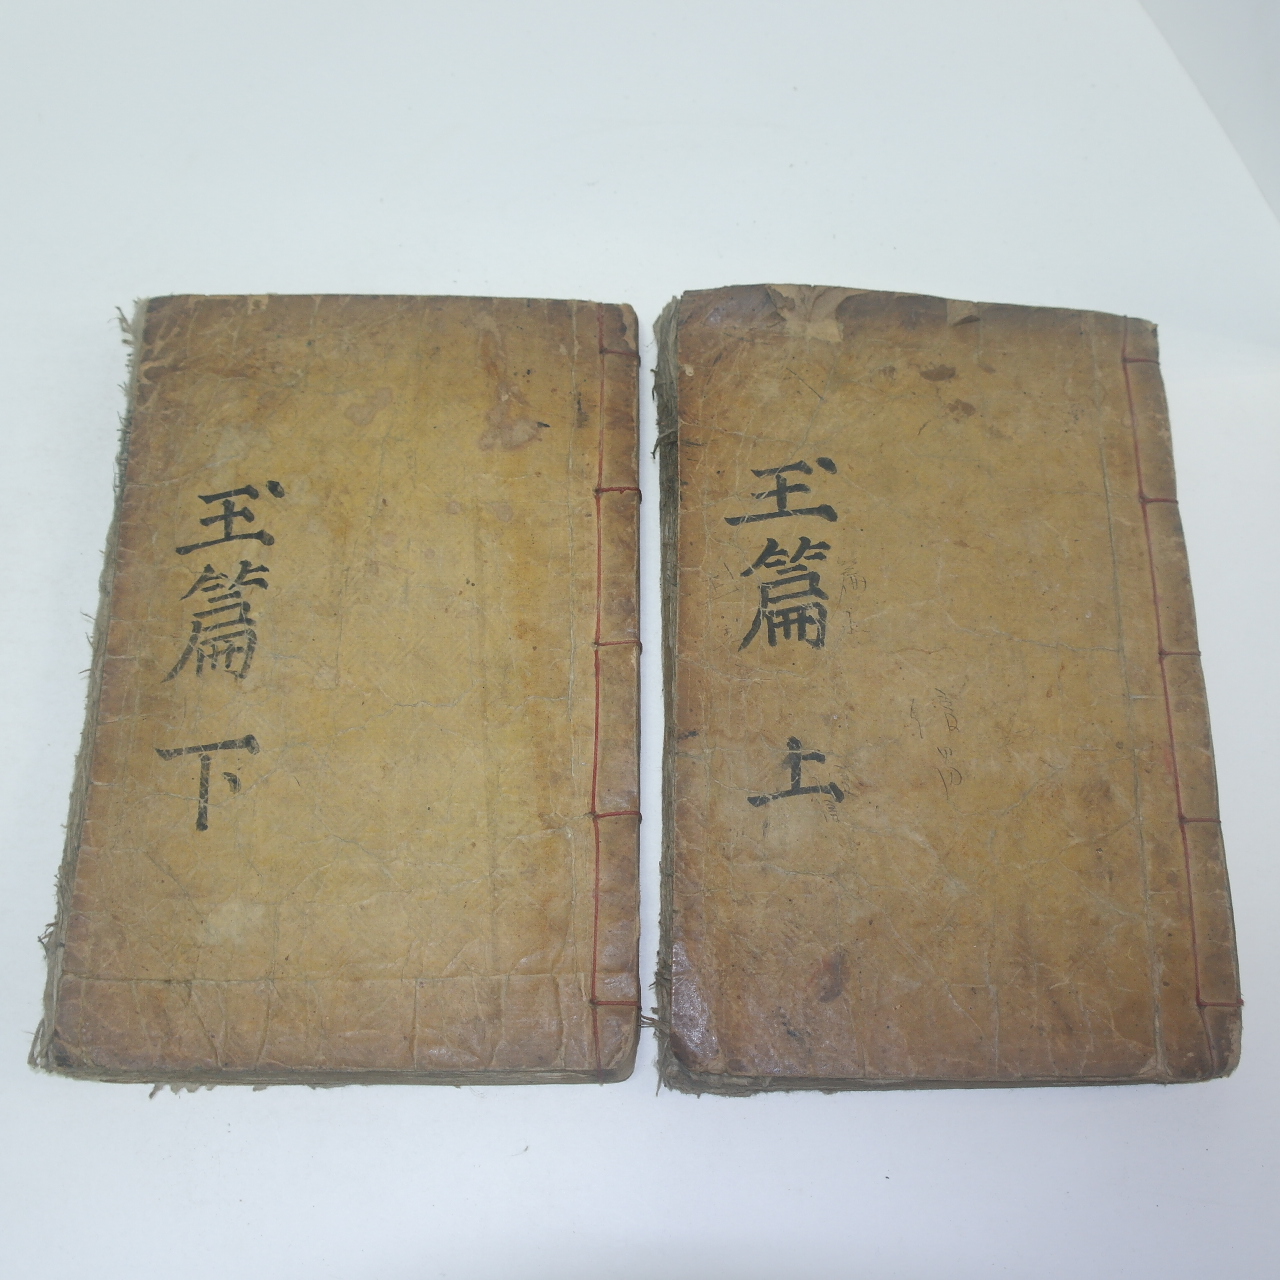 玉篇 上
玉篇 下